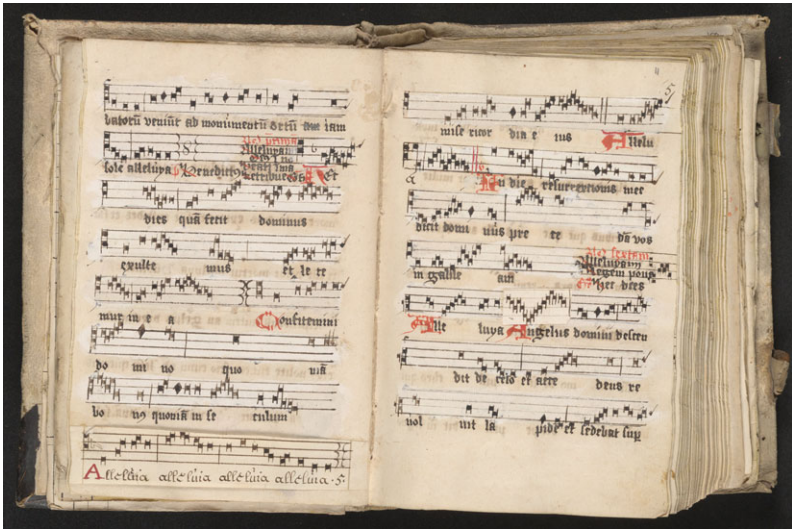 batorū veniūt ad monumentū ortū iam
Ad prima
Alleluya
sole alleluya Benedictus
dies quā fecit dominus
exulte mus et le te
mur in e a Confitemini
do mi no quo niā
bo nꝰ quoniā in se culum
Alleluia alleluia alleluia alleluia · S ·
mise ricor dia e ius Allelu
a In die resurrectionis mee
dicit domi nus pre ce dā vos
Ad sextam
Alleluyam
in galile am Regem
Hec dies
Alle luya Angelus domini descen
dit de celo et acce dens re
vol vit la pidē et sedebat sup